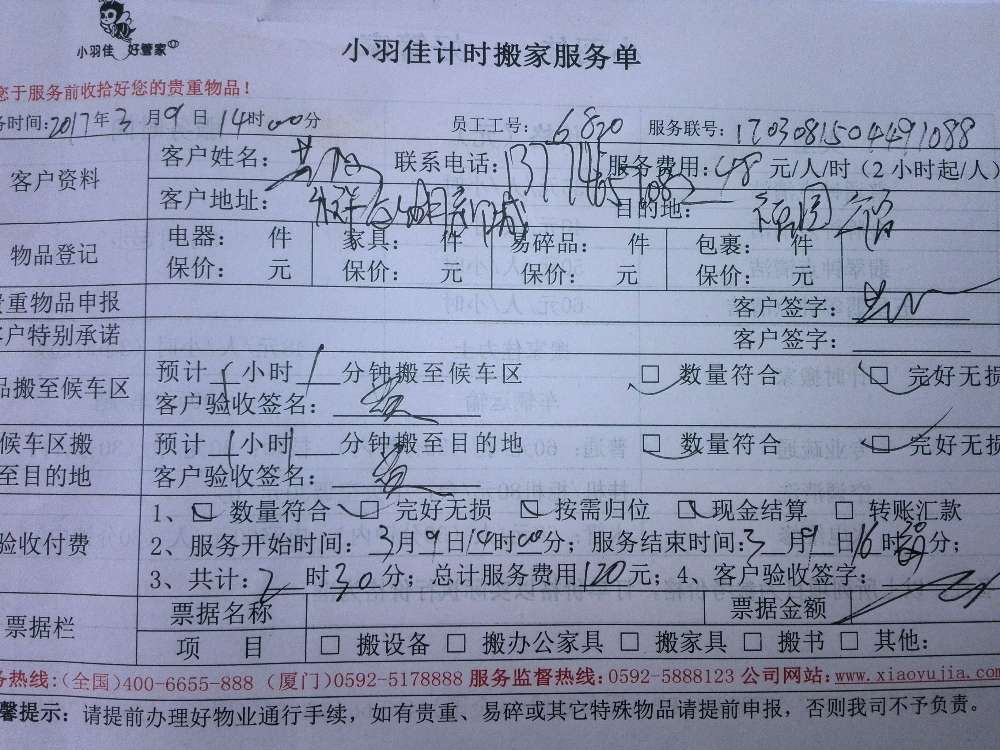 小羽佳 好管家
小羽佳计时搬家服务单
您于服务前收拾好您的贵重物品！
务时间:2017年3月9日14时00分 员工工号: 6820 服务联号: 1703081504491088
客户资料 客户姓名： 联系电话: 服务费用: 48 元/人/时（2小时起/人）
客户地址： 目的地：
物品登记 电器： 件 家具： 件 易碎品： 件 包裹： 件
保价： 元 保价： 元 保价： 元 保价： 元
贵重物品申报 客户签字：
客户特别承诺 客户签字：
品搬至候车区 预计 / 小时 / 分钟搬至候车区 □ 数量符合 □ 完好无损
客户验收签名：
候车区搬至目的地 预计 / 小时 / 分钟搬至目的地 □ 数量符合 □ 完好无损
客户验收签名：
验收付费 1、□ 数量符合 □ 完好无损 □ 按需归位 □ 现金结算 □ 转账汇款
2、服务开始时间: 3月9日14时00分；服务结束时间:3月9日16时 分；
3、共计: 2 时30分；总计服务费用120元；4、客户验收签字：
票据栏 票据名称 票据金额
项 目 □ 搬设备 □ 搬办公家具 □ 搬家具 □ 搬书 □ 其他:
务热线:(全国)400-6655-888 (厦门)0592-5178888 服务监督热线:0592-5888123 公司网站:www.xiaoyujia.com
馨提示：请提前办理好物业通行手续，如有贵重、易碎或其它特殊物品请提前申报，否则我司不予负责。